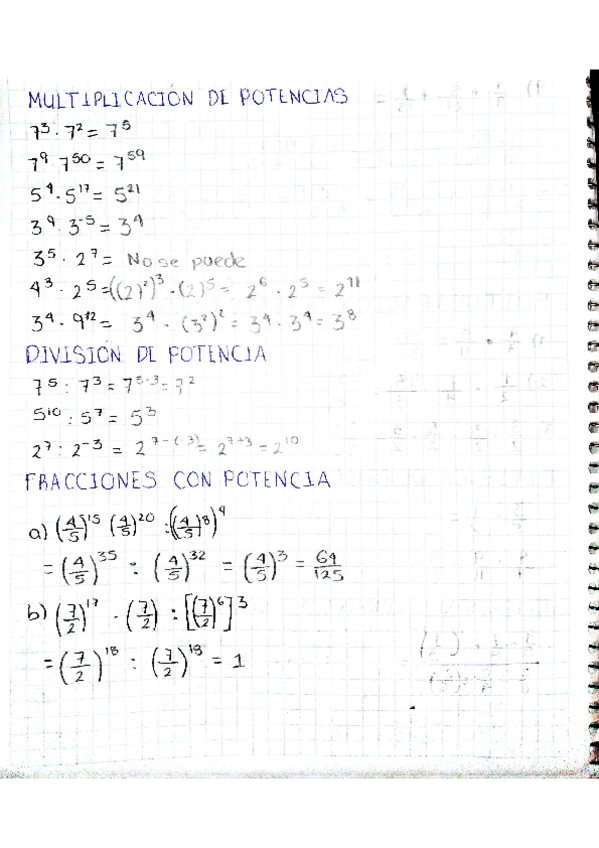 MULTIPLICACIÓN DE POTENCIAS
7³ · 7² = 7⁵
7⁹ · 7⁵⁰ = 7⁵⁹
5⁴ · 5¹⁷ = 5²¹
3⁹ · 3⁻⁵ = 3⁴
3⁵ · 2⁷ = No se puede
4³ · 2⁵ = ((2)²)³ · (2)⁵ = 2⁶ · 2⁵ = 2¹¹
3⁴ · 9¹² = 3⁴ · (3²)² = 3⁴ · 3⁴ = 3⁸
DIVISIÓN DE POTENCIA
7⁵ : 7³ = 7⁵⁻³ = 7²
5¹⁰ : 5⁷ = 5³
2⁷ : 2⁻³ = 2⁷⁻⁽⁻³⁾ = 2⁷⁺³ = 2¹⁰
FRACCIONES CON POTENCIA
a) (4/5)¹⁵ (4/5)²⁰ : ((4/5)⁸)⁴
= (4/5)³⁵ : (4/5)³² = (4/5)³ = 64/125
b) (7/2)¹⁷ · (7/2) : [(7/2)⁶]³
= (7/2)¹⁸ : (7/2)¹⁸ = 1